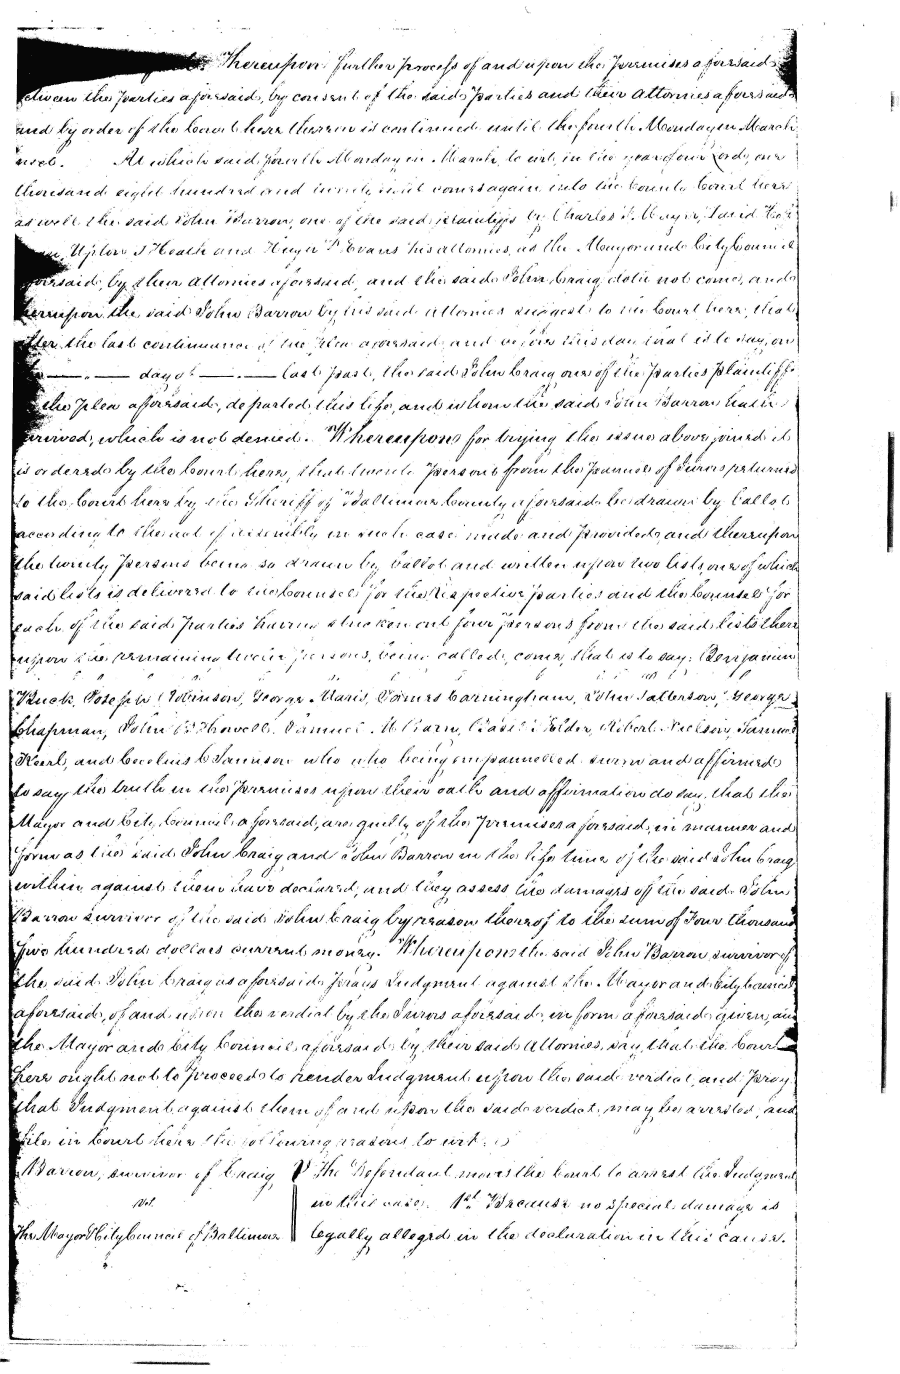 Thereupon further process of and upon the premises aforesaid
between the parties aforesaid, by consent of the said parties and their attornies aforesaid
and by order of the Court here thereon is continued until the fourth Monday in March
next. At which said fourth Monday in March, to wit, in the year of our Lord, one
thousand eight hundred and twenty eight comes again into the County Court here
as well the said John Barron, one of the said plaintiffs by Charles F. Mayer, David
Upton S Heath and Hugh D Evans his attornies, as the Mayor and City Council
aforesaid, by their attornies aforesaid, and the said John Craig doth not come, and
hereupon the said John Barron by his said attornies suggests to the Court here, that
after the last continuance of the plea aforesaid and before this day that is to say, on
the —— day of —— last past, the said John Craig one of the parties plaintiff
the plea aforesaid, departed this life, and whom the said John Barron hath
survived, which is not denied. Whereupon for trying the issue above joined it
is ordered by the Court here, that twenty persons from the pannel of Jurors returned
to the Court here by the Sheriff of Baltimore County aforesaid be drawn by ballot
according to the act of assembly in such case made and provided, and thereupon
the twenty persons being so drawn by ballot and written upon two lists one of which
said lists is delivered to the Counsel for the respective parties and the Counsel for
each of the said parties having stricken out four persons from the said lists there
upon the remaining twelve persons, being called, come, that is to say; Benjamin
Buck, Joseph Robinson, George Maris, James Carningham, John Patterson, George
Chapman, John W Howell, Samuel McKarn, Basil Holder, Robert Neilson, Samuel
Keerl, and Cecelius C Jamison who who being empannelled sworn and affirmed
to say the truth in the premises upon their oath and affirmation do say, that the
Mayor and City Council aforesaid, are guilty of the premises aforesaid, in manner and
form as the said John Craig and John Barron in the life time of the said John Craig
within against them have declared, and they assess the damages of the said John
Barron survivor of the said John Craig by reason thereof to the sum of Four thousand
five hundred dollars current money. Whereupon the said John Barron survivor of
the said John Craig as aforesaid prays Judgment against the Mayor and City Council
aforesaid, of and upon the verdict by the Jurors aforesaid in form aforesaid given, and
the Mayor and City Council aforesaid by their said Attornies, say, that the Court
here ought not to proceed to render Judgment upon the said verdict, and pray
that Judgment against them of and upon the said verdict may be arrested, and
file in Court here the following reasons to wit:
Barron, survivor of Craig The Defendant moves the Court to arrest the Judgment
vs. in this case. 1st. Because no special damage is
The Mayor & City Council of Baltimore legally alleged in the declaration in this cause.